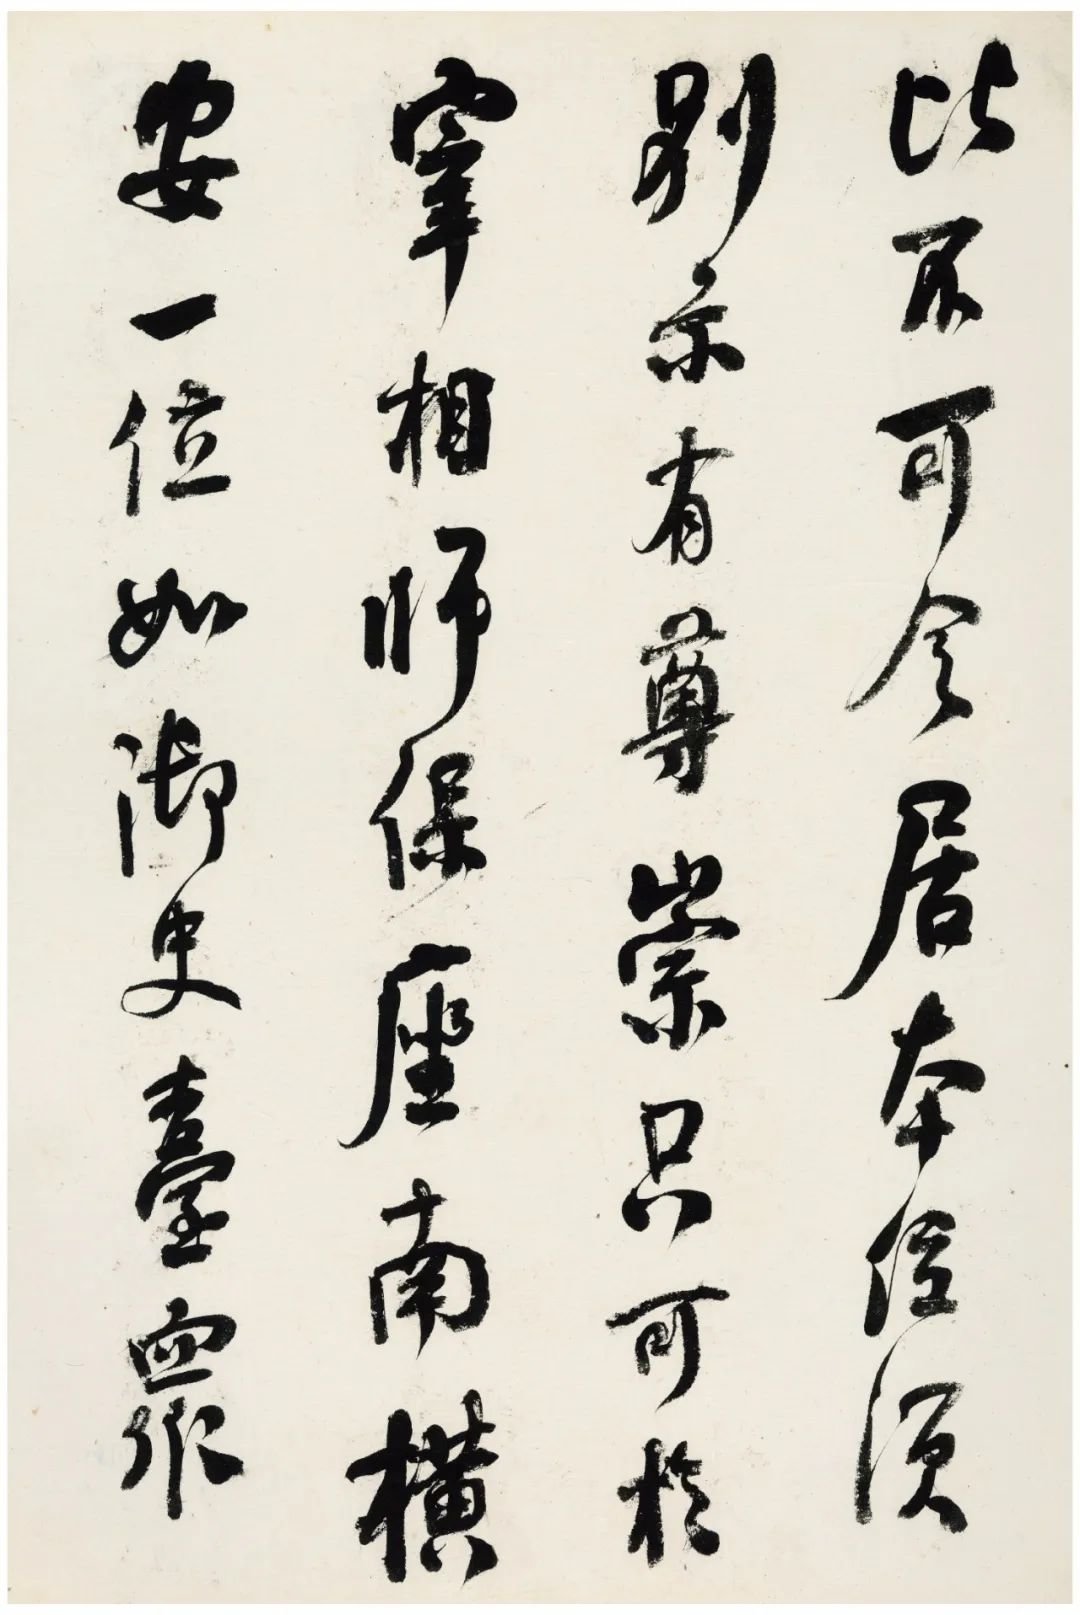 比不可令居本位須
別示有尊崇只可於
宰相師保座南橫
安一位如御史臺眾